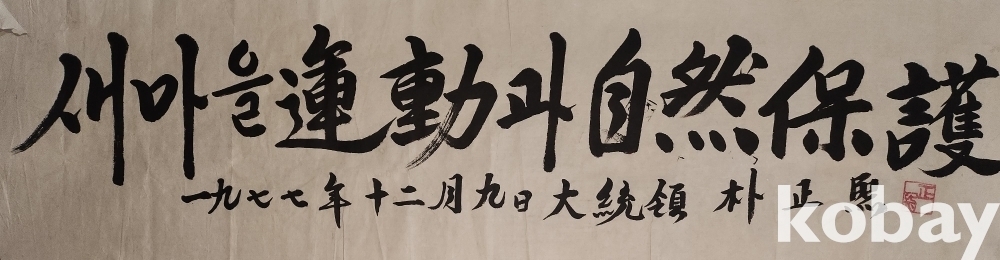 새마을運動과自然保護
一九七七年十二月九日大統領 朴正熙
kobay